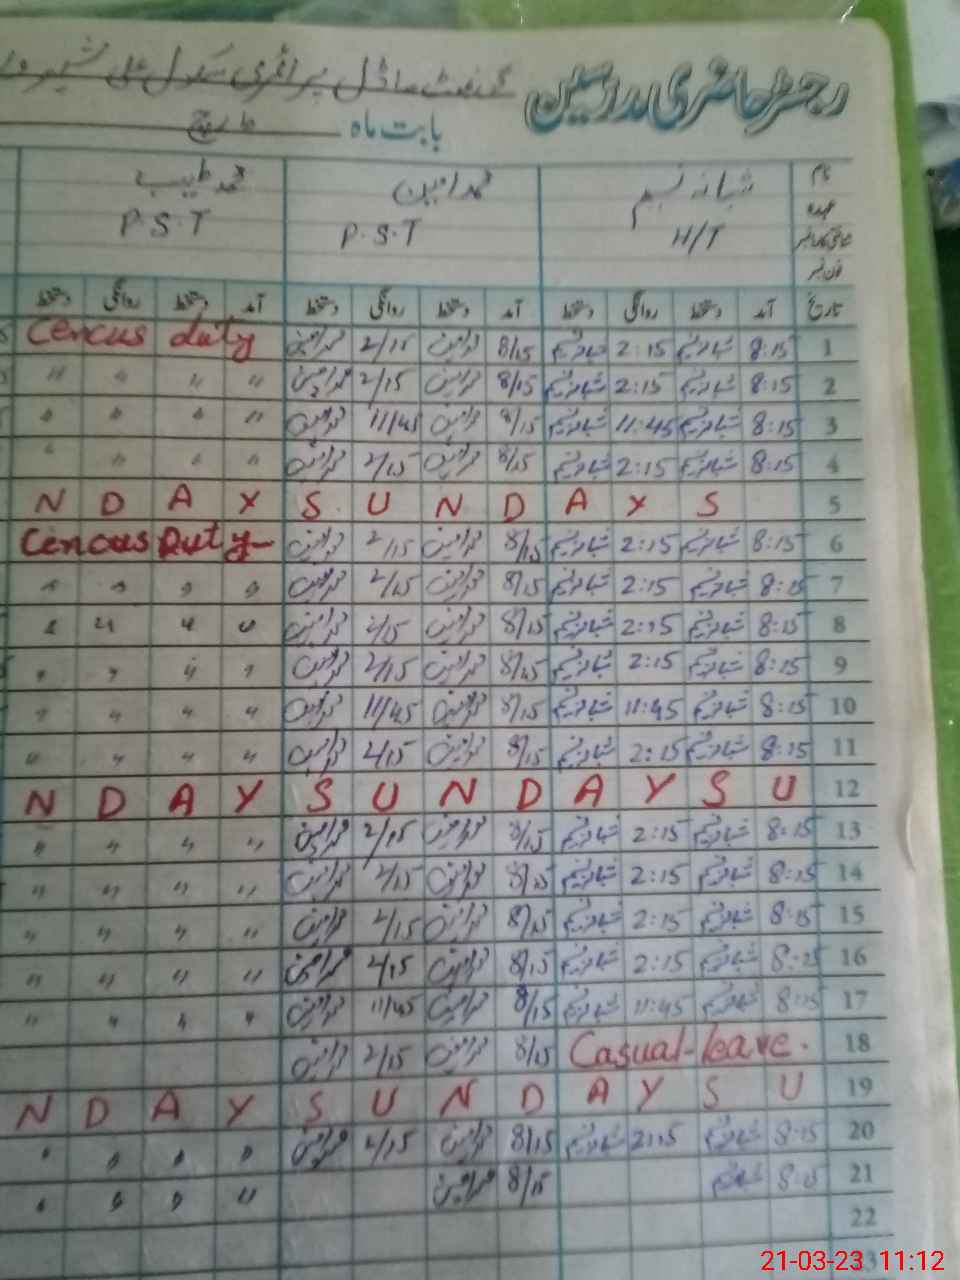 رجسٹر حاضری مدرسین
گورنمنٹ ماڈل پرائمری سکول علی
بابت ماہ مارچ
نام شبانہ نسیم محمد امین محمد طیب
عہدہ H/T P.S.T P.S.T
شناختی کارڈ نمبر
فون نمبر
تاریخ آمد دستخط روانگی دستخط آمد دستخط روانگی دستخط آمد دستخط روانگی دستخط
1 8:15 شبانہ نسیم 2:15 شبانہ نسیم 8/15 محمد امین 2/15 محمد امین Cencus duty
2 8:15 شبانہ نسیم 2:15 شبانہ نسیم 8/15 محمد امین 2/15 محمد امین " " " "
3 8:15 شبانہ نسیم 11:45 شبانہ نسیم 8/15 محمد امین 11/45 محمد امین " " " "
4 8:15 شبانہ نسیم 2:15 شبانہ نسیم 8/15 محمد امین 2/15 محمد امین " " " "
5 N D A Y S U N D A Y S
6 8:15 شبانہ نسیم 2:15 شبانہ نسیم 8/15 محمد امین 2/15 محمد امین Cencus Duty
7 8:15 شبانہ نسیم 2:15 شبانہ نسیم 8/15 محمد امین 2/15 محمد امین " " " "
8 8:15 شبانہ نسیم 2:15 شبانہ نسیم 8/15 محمد امین 2/15 محمد امین " " " "
9 8:15 شبانہ نسیم 2:15 شبانہ نسیم 8/15 محمد امین 2/15 محمد امین " " " "
10 8:15 شبانہ نسیم 11:45 شبانہ نسیم 8/15 محمد امین 11/45 محمد امین " " " "
11 8:15 شبانہ نسیم 2:15 شبانہ نسیم 8/15 محمد امین 2/15 محمد امین " " " "
12 N D A Y S U N D A Y S U
13 8:15 شبانہ نسیم 2:15 شبانہ نسیم 8/15 محمد امین 2/15 محمد امین " " " "
14 8:15 شبانہ نسیم 2:15 شبانہ نسیم 8/15 محمد امین 2/15 محمد امین " " " "
15 8:15 شبانہ نسیم 2:15 شبانہ نسیم 8/15 محمد امین 2/15 محمد امین " " " "
16 8:15 شبانہ نسیم 2:15 شبانہ نسیم 8/15 محمد امین 2/15 محمد امین " " " "
17 8:15 شبانہ نسیم 11:45 شبانہ نسیم 8/15 محمد امین 11/45 محمد امین " " " "
18 Casual-leave. 8/15 محمد امین 2/15 محمد امین
19 N D A Y S U N D A Y S U
20 8:15 شبانہ نسیم 2:15 شبانہ نسیم 8/15 محمد امین 2/15 محمد امین " " " "
21 8:15 شبانہ نسیم 8/15 محمد امین " " " "
22
21-03-23 11:12